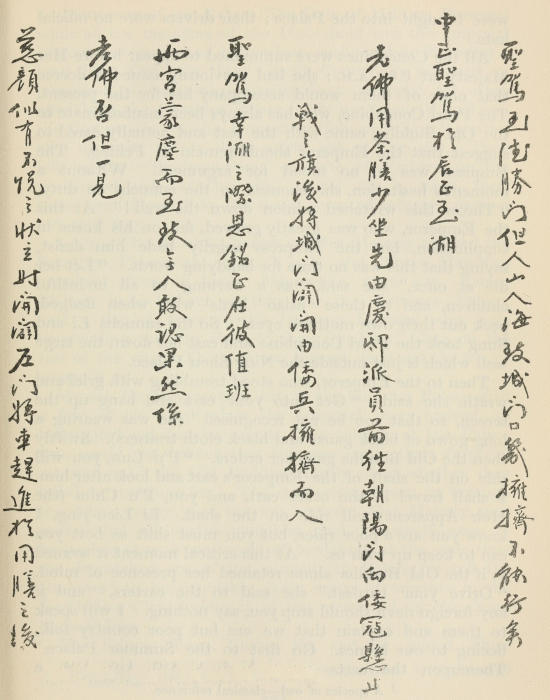 聖駕至德勝門但人山人海致城門口幾擁擠不能行矣
中正聖駕於辰正至湖
老佛用茶膳少坐先由慶邸派員前往朝陽門向倭寇懸止
戰之旗後將城門開由倭兵擁擠而入
聖駕幸湖際恩銘正在彼值班
此宮蒙塵而至致令人敢認果然係
老佛否但一見
慈顏似有不悅之狀立時開闢左門將車趕進於用膳之後